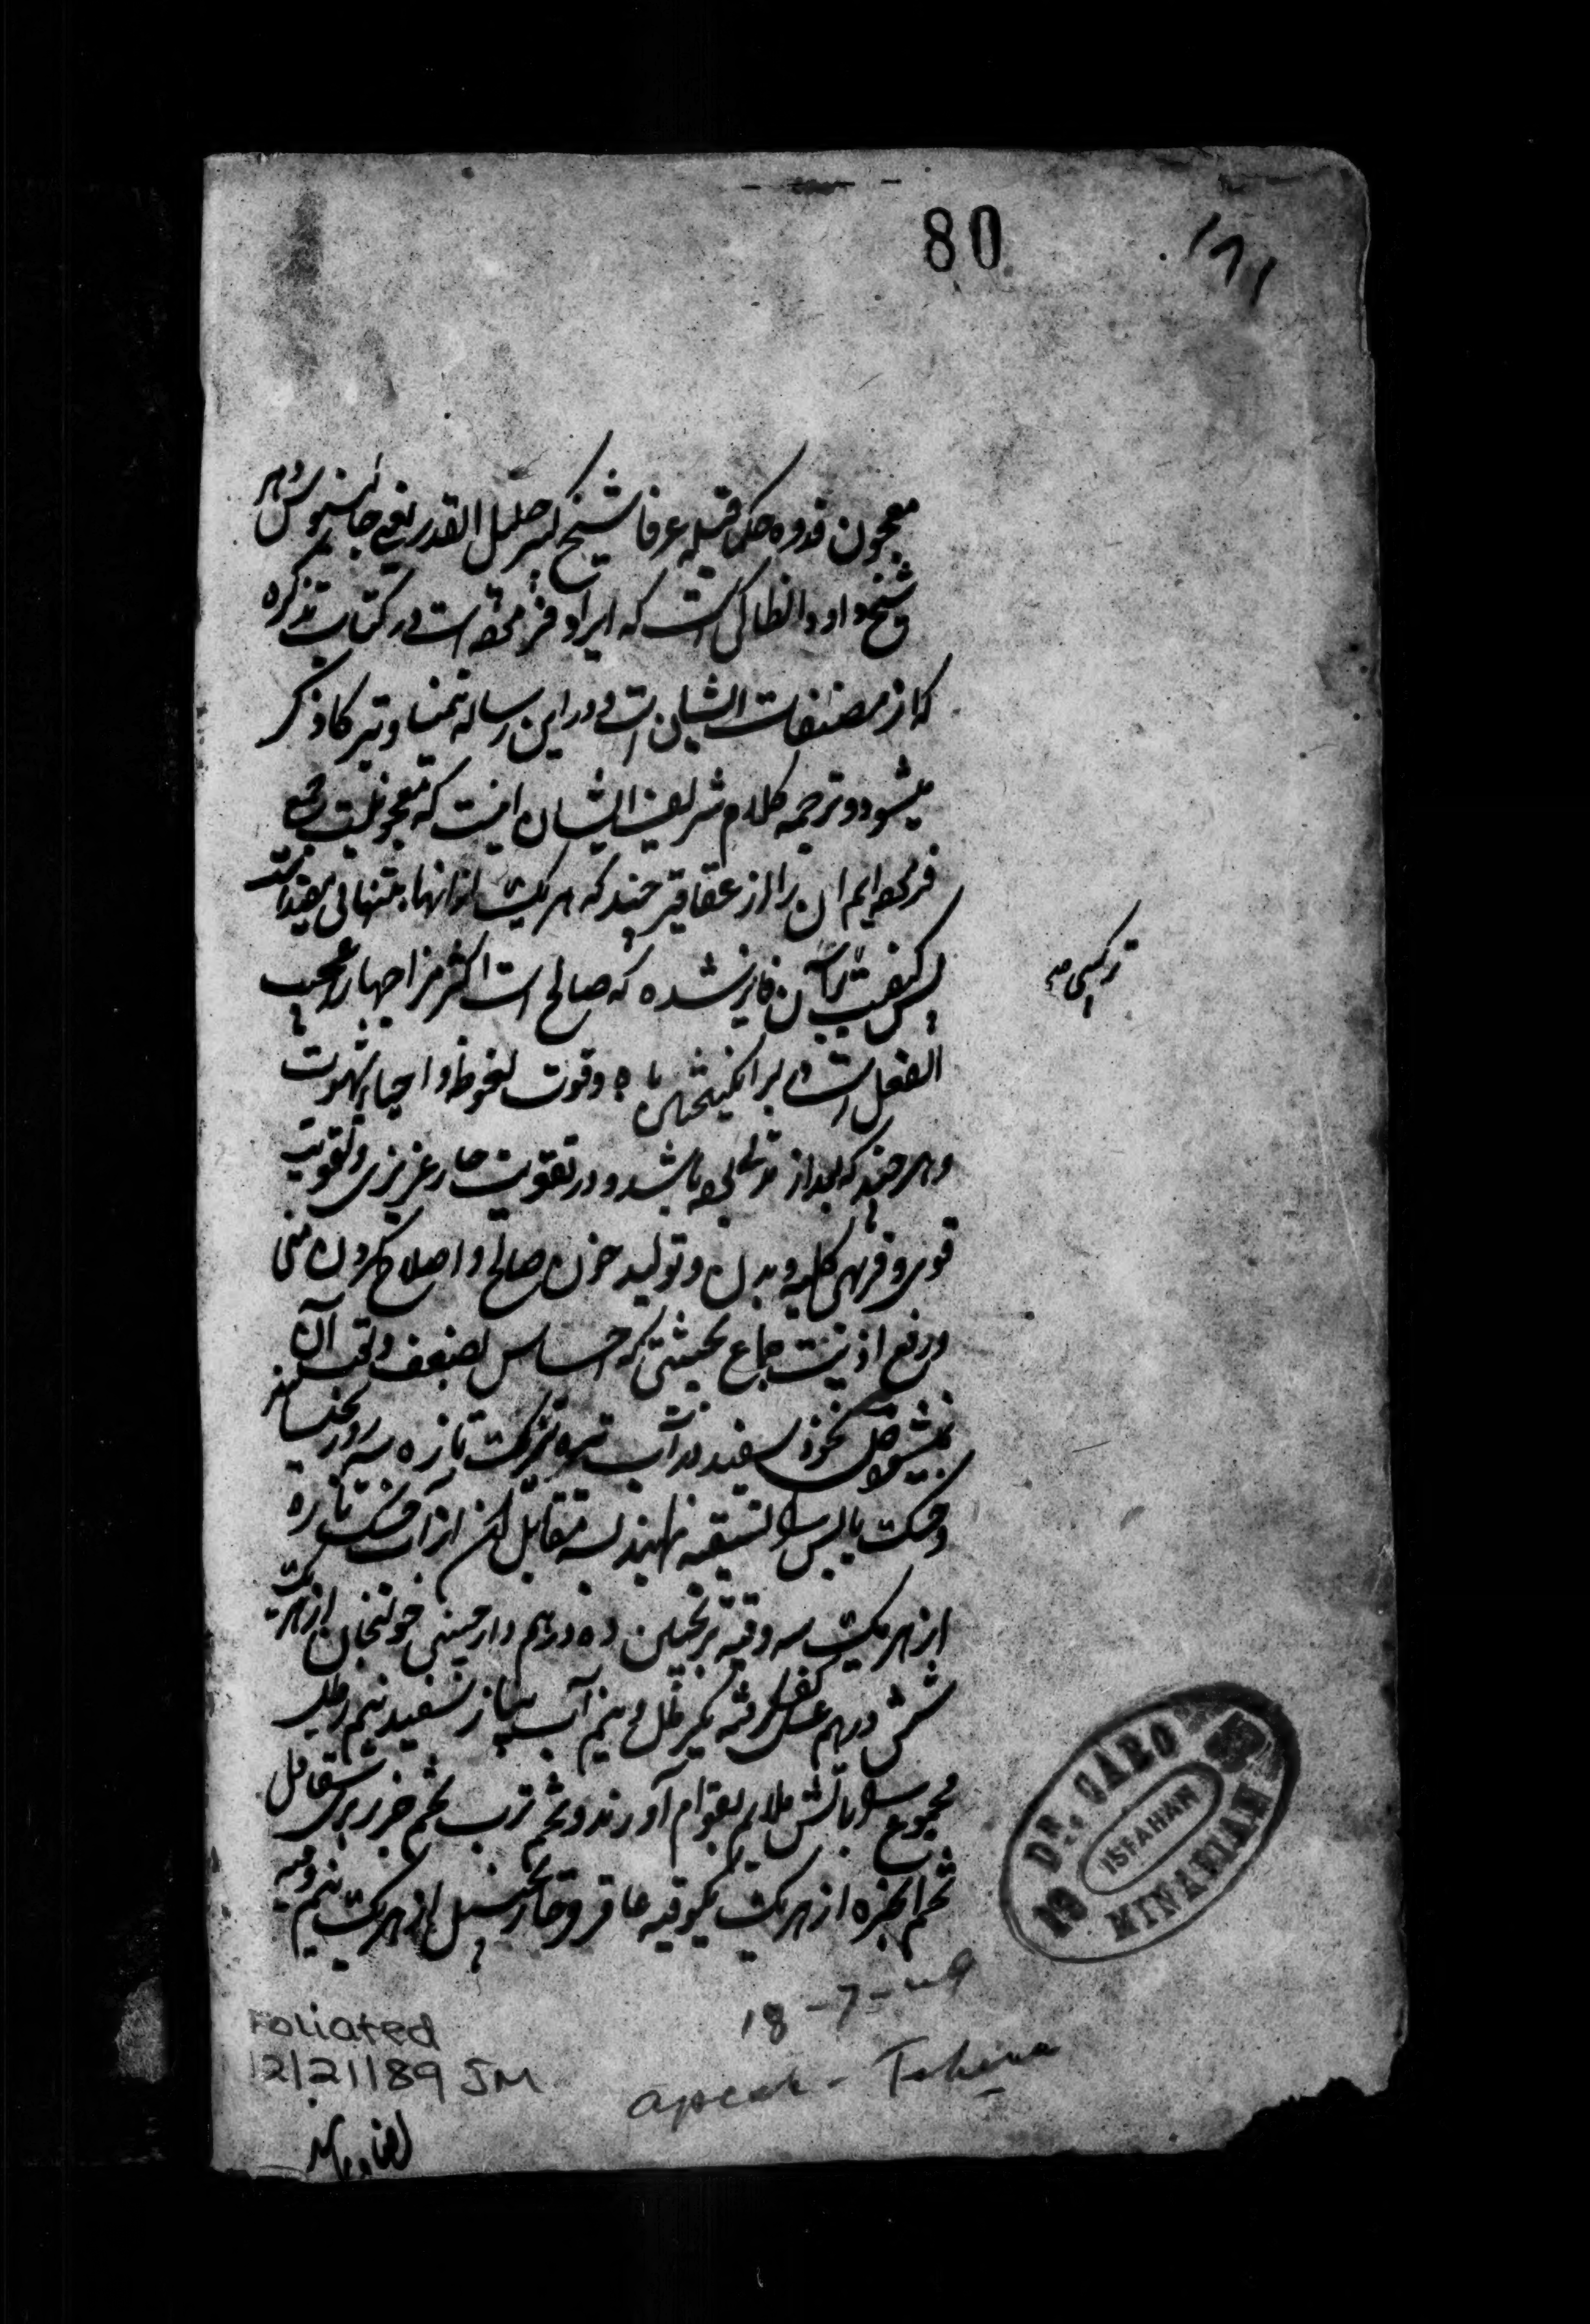 80
۱۸۱
معجون قدوه حکما قبله عرفا شیخ کبیر جلیل القدر یعنی جالینوس دهر
شیخ داود انطاکی است که ایراد فرموده است در کتاب تذکره
که از مصنفات ایشان است و در این رساله تیمنا و تبرکا ذکر
میشود و ترجمه کلام شریف ایشان اینست که معجونیست
فرموده ایم آن را از عقاقیر چند که هر یک از آنها به تنهائی
پس کیفیت آن فایز شده که صالح است اکثر مزاجها را و عجیب
الفعل است در برانگیختن باه و قوت نعوظ و احیاء شهوت
و هر چند که بعد از باشد و در تقویت حار غریزی و تقویت
قوی و فربهی کلیه و بدن و تولید خون صالح و اصلاح کردن منی
و رفع اذیت جماع بحیثیتی که احساس بضعف و تعب آن
نمیشود نخود سفید در آب تره تیزک تازه سه روز بخیسانند
و خشک پس نهند بسه مقابل آن از آب خسک تازه
از هر یک سه وقیه ترنجبین ده درهم دارچینی خولنجان از هر یک
شش درهم عسل کف گرفته یکرطل و نیم آب پیاز سفید نیم رطل
مجموع را باتش ملایم بقوام آورند و تخم ترب تخم جزر بری شقاقل
تخم انجره از هر یک یکوقیه عاقرقرحا زنجبیل از هر یک نیم وقیه
ترکیبی
DR. CARO
MINASIAN
ISFAHAN
19
18-7-
Foliated
12/21/89 JM